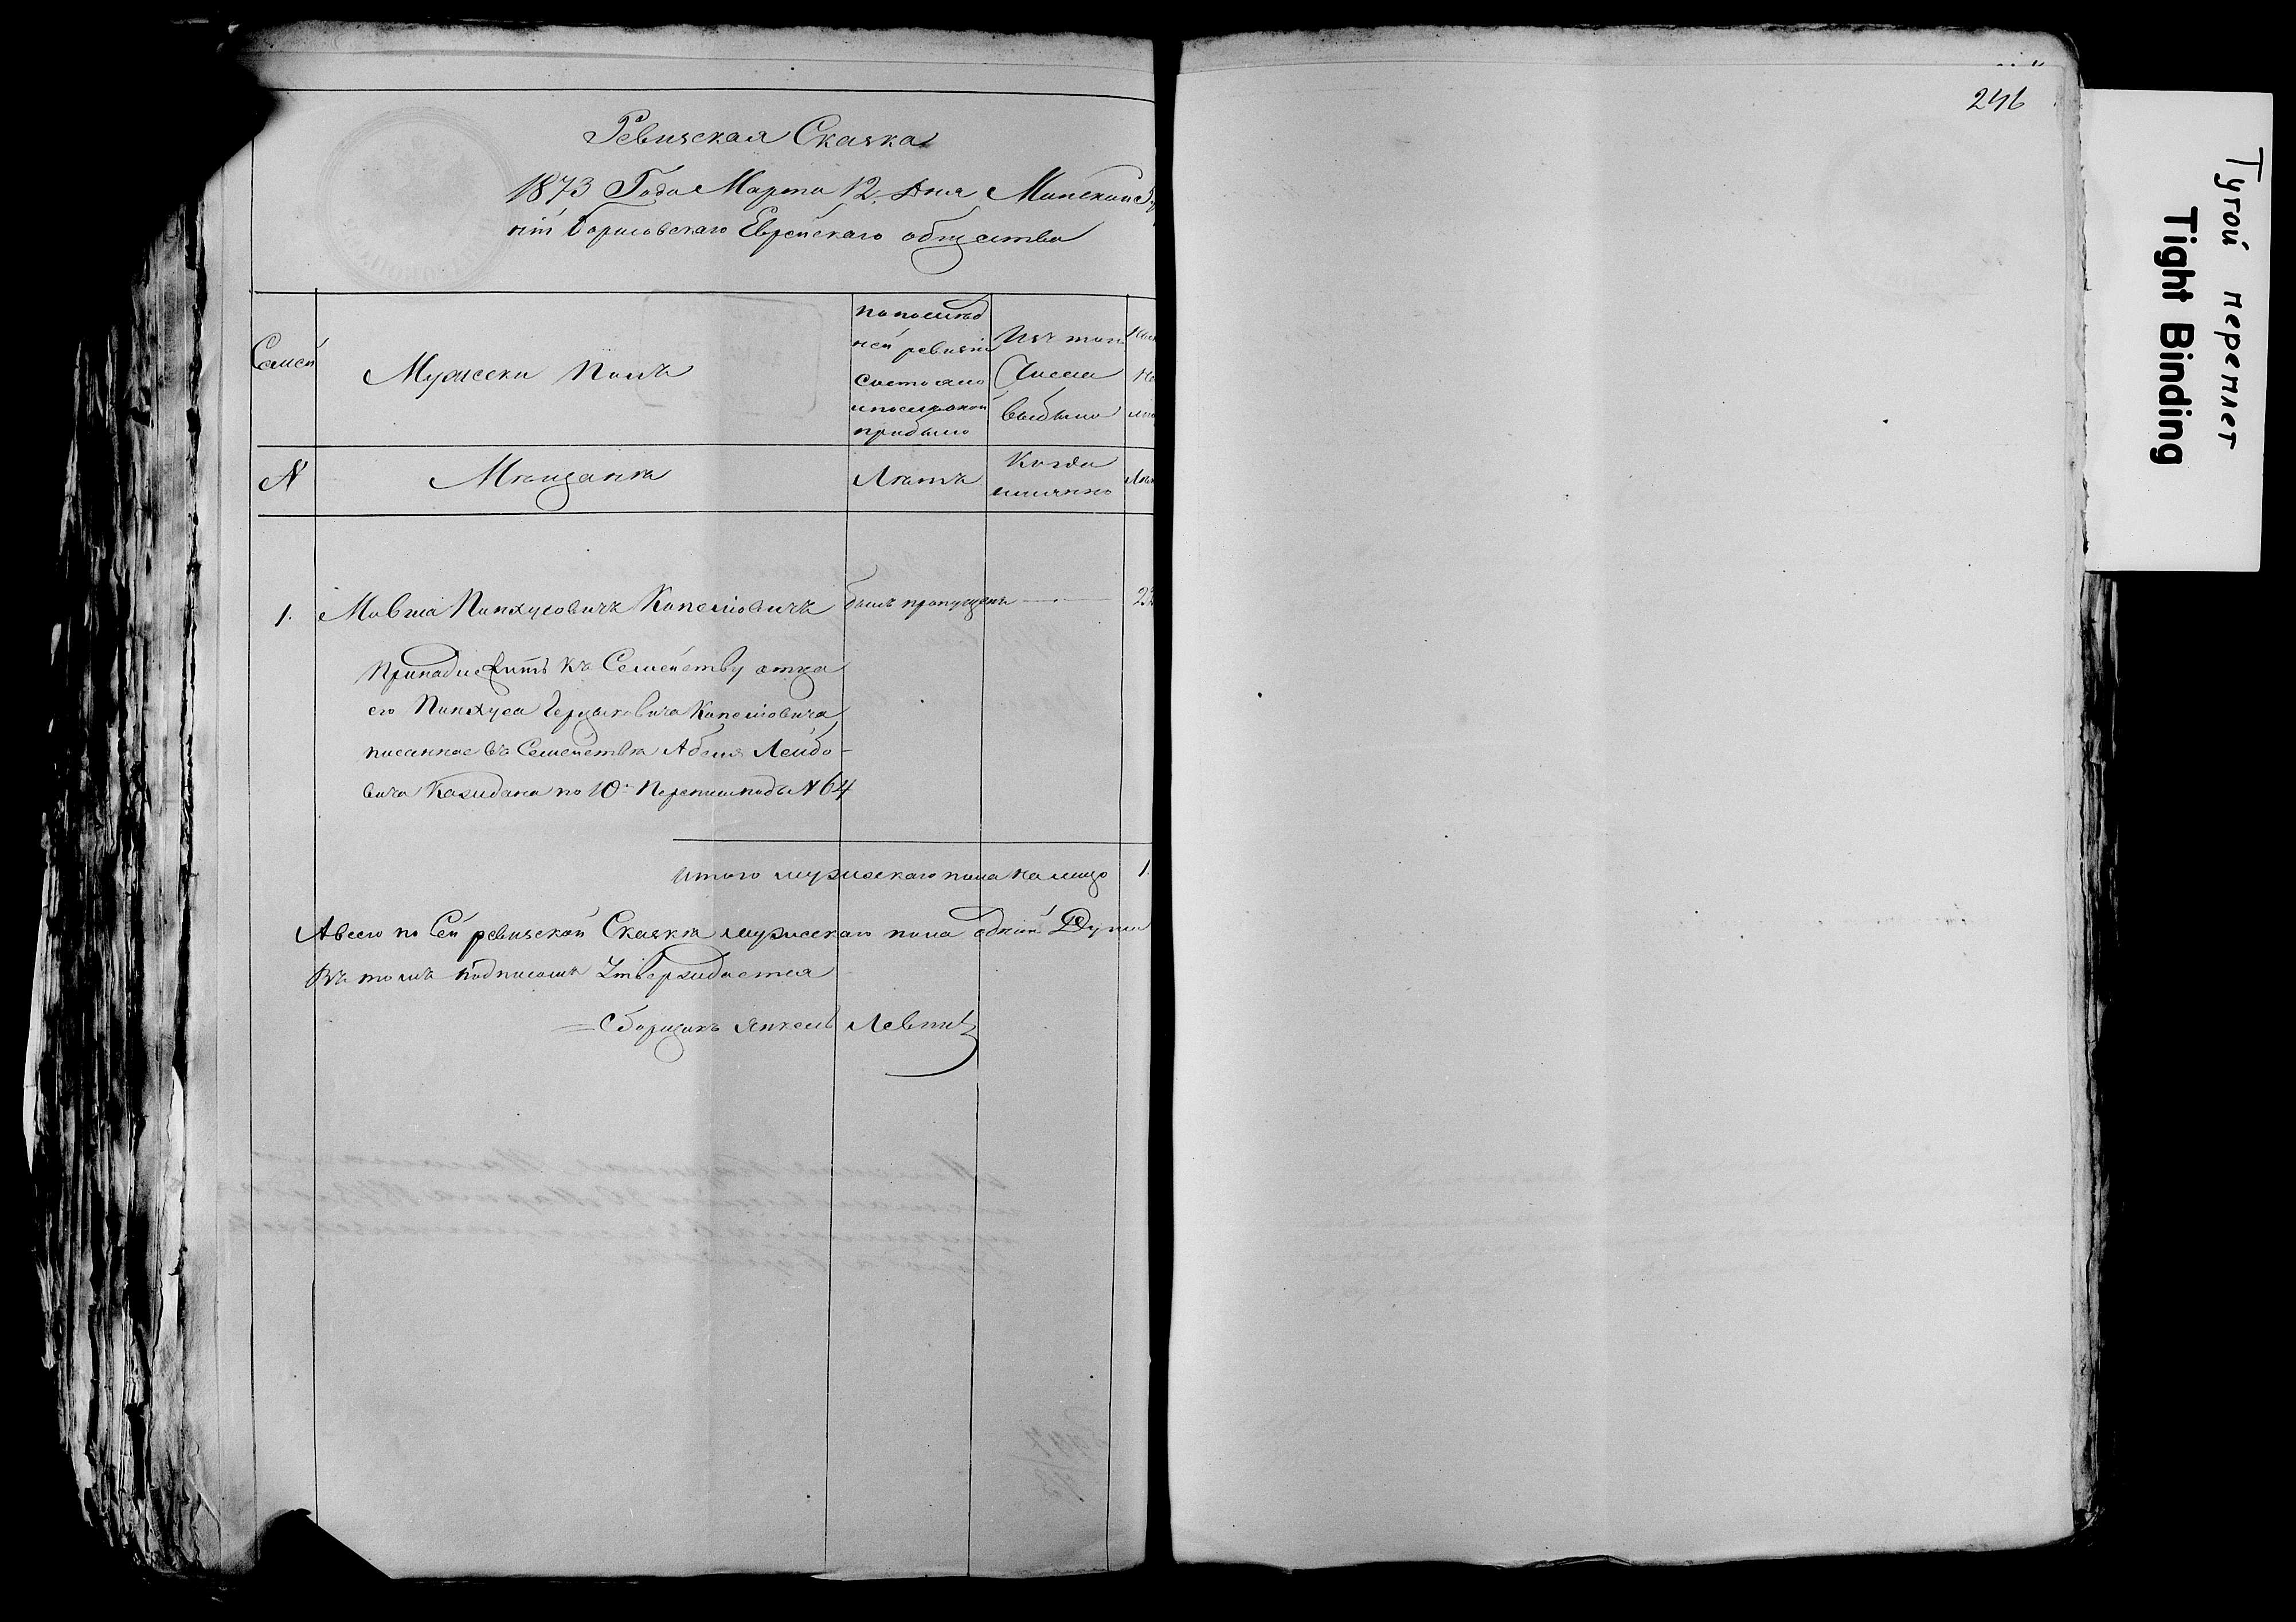 Ревизская Сказка
1873 Года Марта 12. Дня Минской Гу
ніи Борисовскаго Еврейскаго общества
Семей
Мужески Полъ
по послѣд
ней ревизіи
состояло
и послѣ оной
прибыло
Изъ того
Числа
выбыло
N
Мѣщанъ
Лѣтъ
Когда
имянно
1. Мовша Пинхусовичъ Капеліовичъ былъ пропущенъ — 23
Принадлежитъ къ Семейству отца
его Пинхуса Герцыковича Капеліовича
писанное въ Семействѣ Абеля Лейбо-
вича Кажедана по 10й Переписи подъ N 64
Итого мужескаго пола на лицо 1.
А всего по сей ревизской Сказкѣ мужескаго пола одной Души
въ томъ подписомъ Утверждается
Сборщикъ Янкель Левинъ
246
Тугой переплет
Tight Binding